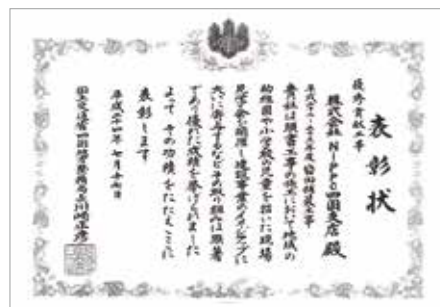 表彰状
優秀貢献工事
株式会社NIPPO四国支店 殿
平成二十二-二十三年度 舗装工事
貴社は頭書工事の施工において地域の
幼稚園や小学校の児童を招いた現場
見学会を開催し建設事業のイメージアップに
大いに寄与するなどその取り組みは顕著
であり優れた成績を挙げられました
よってその功績をたたえここに
表彰します
平成二十四年七月十七日
国土交通省四国地方整備局長川﨑正彦